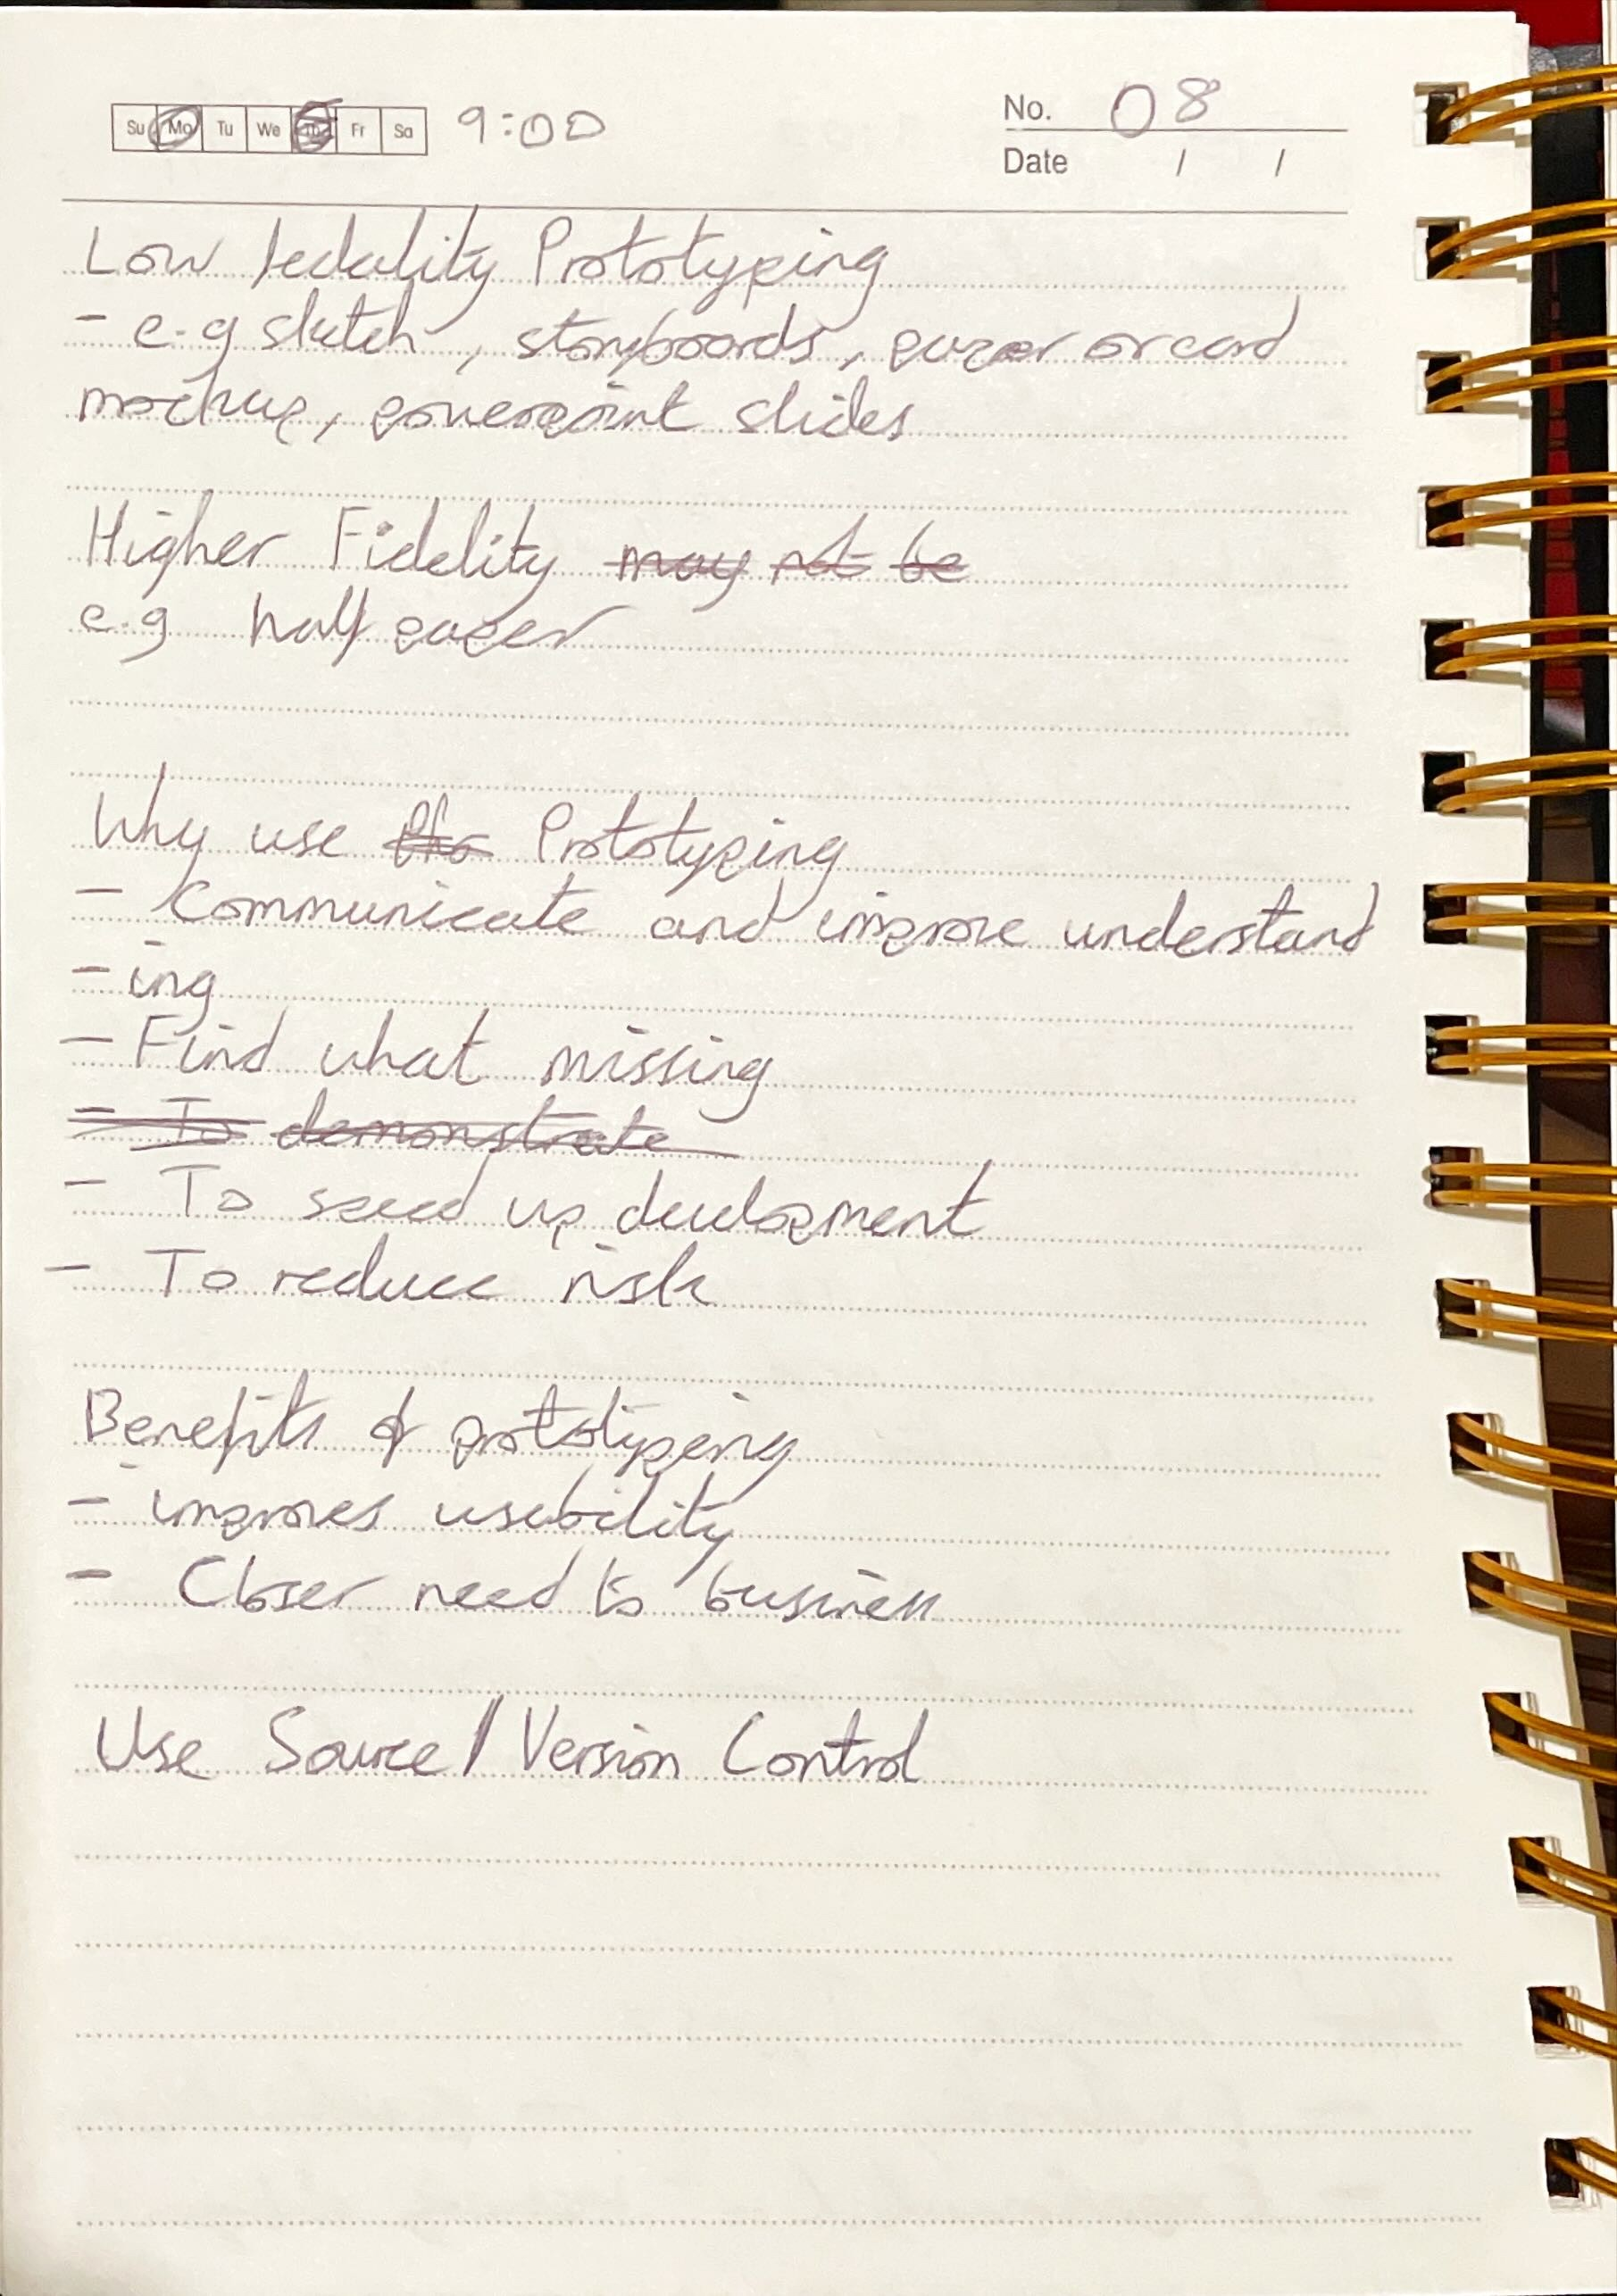 Su Mo Tu We Th Fr Sa 9:00 No. 08
Date / /
Low fedality Prototyping
- e.g sketch, storyboards, paper or card
mockup, powerpoint slides
Higher Fidelity may not be
e.g half paper
Why use Pho Prototyping
- Communicate and improve understand
-ing
- Find what missing
- To demonstrate
- To speed up development
- To reduce risk
Benefits of prototyping
- improves usability
- Closer need to business
Use Source/Version Control